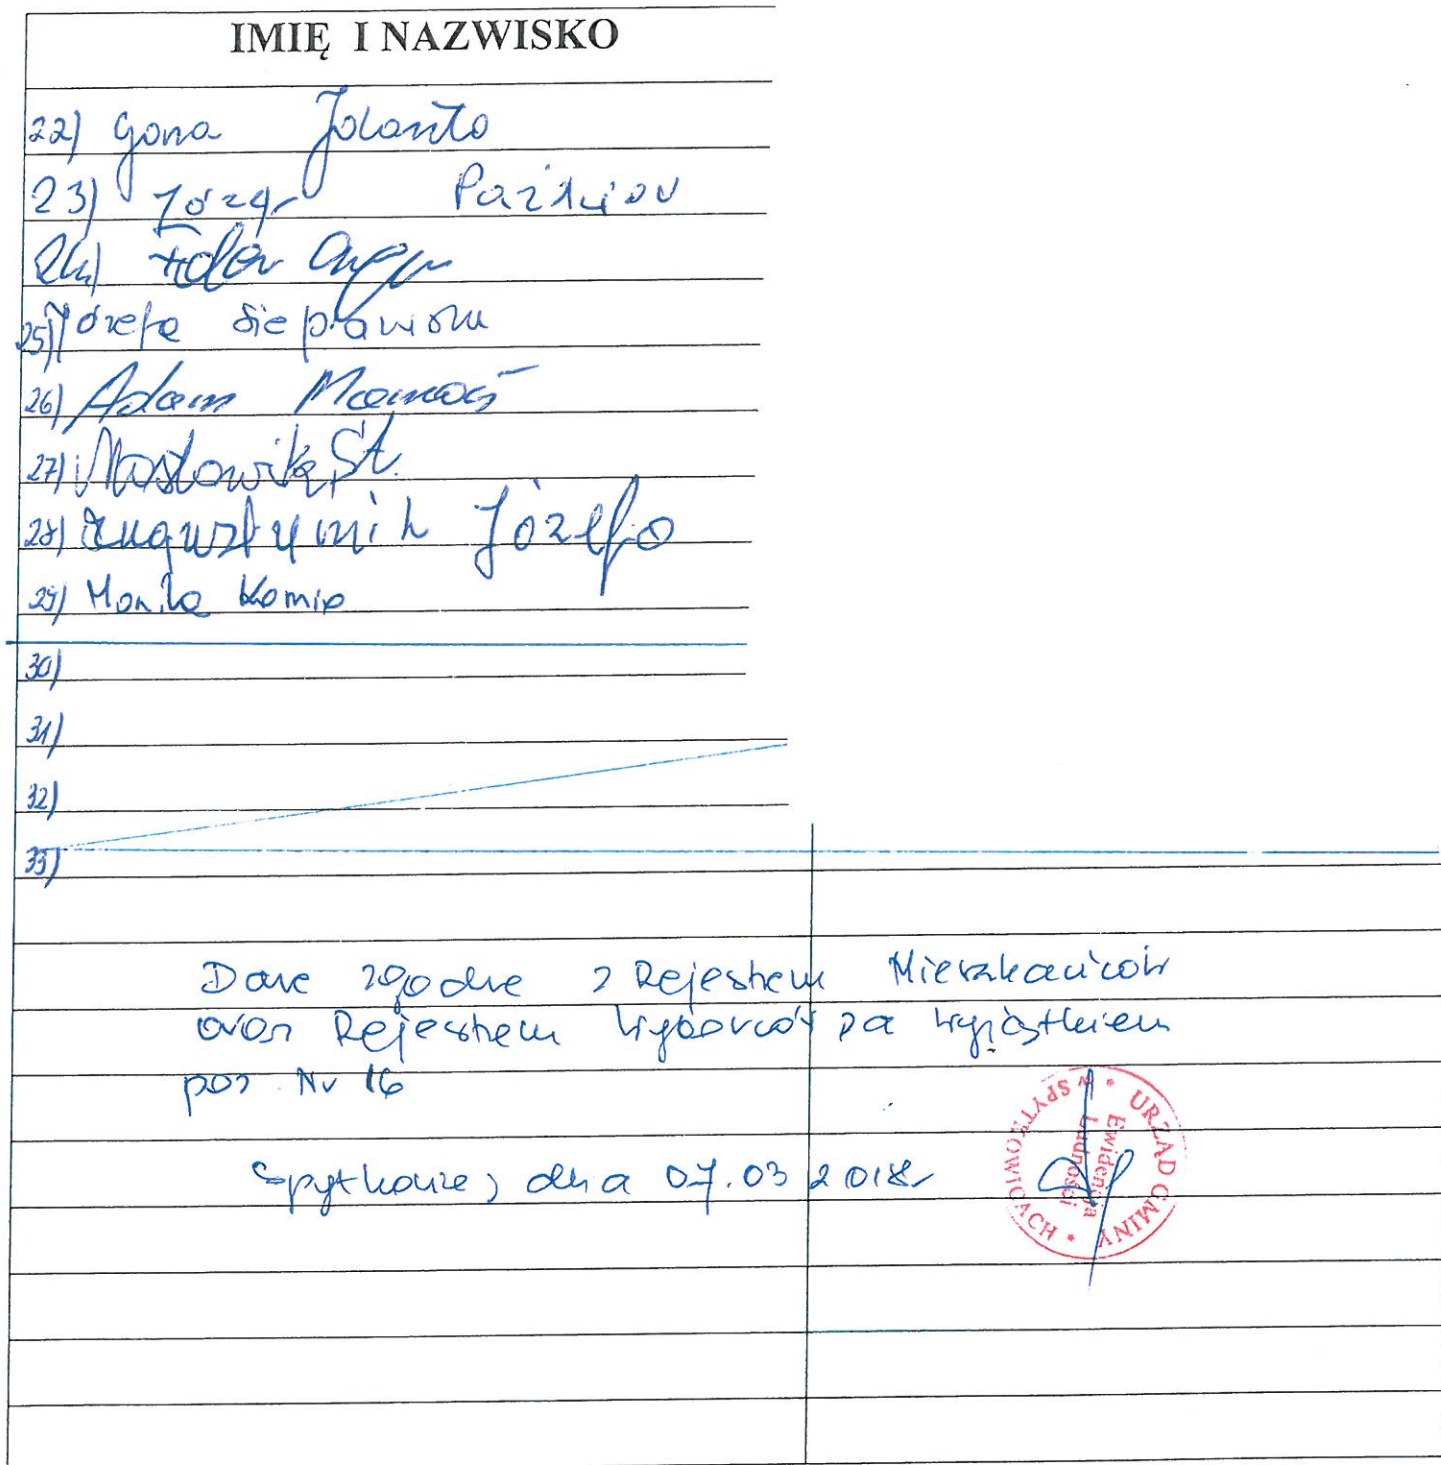 IMIĘ I NAZWISKO
22) Gona Jolanta
23) Józef
24)
25) Józefa Sieprawska
26) Adam
27) Masłowska St.
28) Augustyniak Józefa
29) Monika Kamia
30)
31)
32)
33)
Dane zgodne z Rejestrem Mieszkańców
oraz Rejestrem Wyborców za wyjątkiem
poz. Nr 16
Spytkowice, dnia 07.03 2018r
URZĄD GMINY * W SPYTKOWICACH *
Ewidencja
Ludności